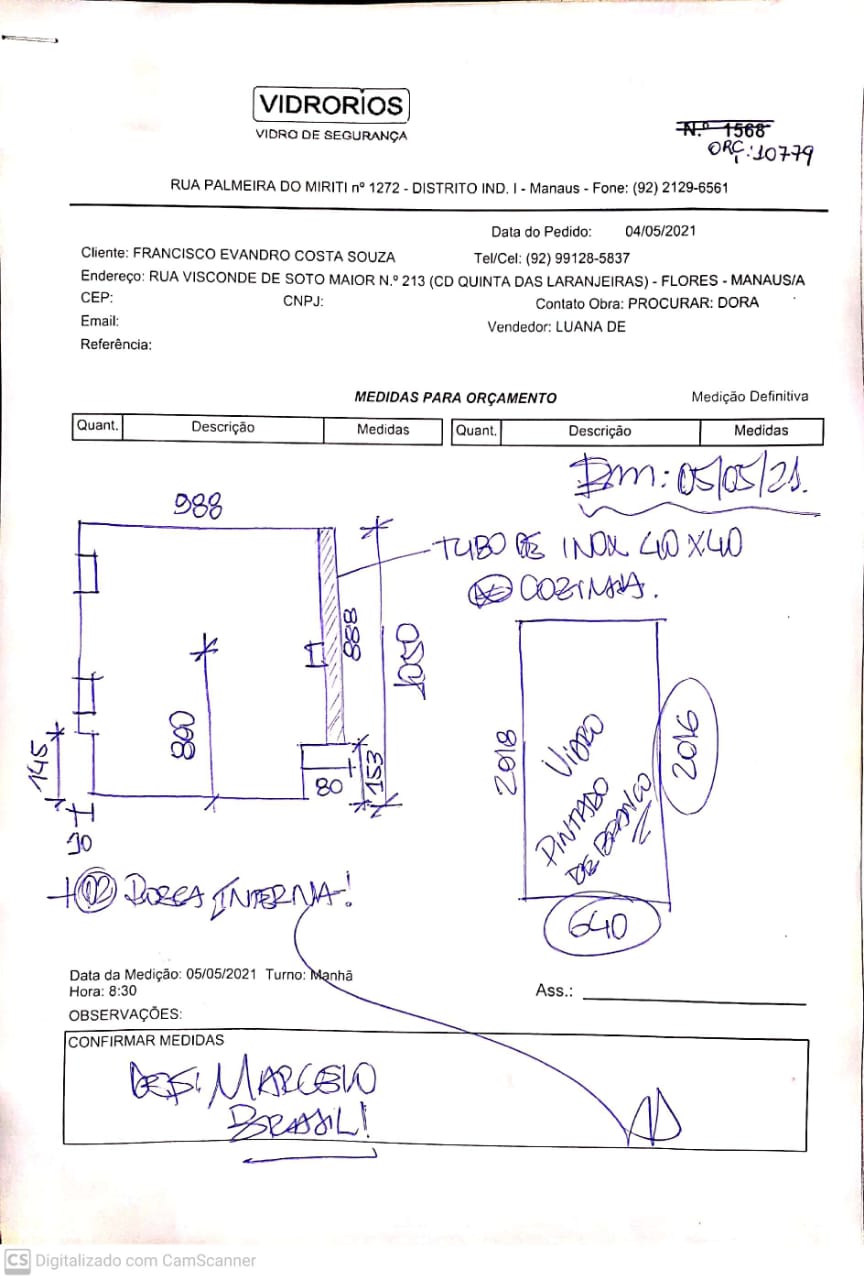 VIDRORIOS
VIDRO DE SEGURANÇA
N.º 1568
ORÇ.:10779
RUA PALMEIRA DO MIRITI nº 1272 - DISTRITO IND. I - Manaus - Fone: (92) 2129-6561
Data do Pedido: 04/05/2021
Cliente: FRANCISCO EVANDRO COSTA SOUZA Tel/Cel: (92) 99128-5837
Endereço: RUA VISCONDE DE SOTO MAIOR N.º 213 (CD QUINTA DAS LARANJEIRAS) - FLORES - MANAUS/A
CEP: CNPJ: Contato Obra: PROCURAR: DORA
Email: Vendedor: LUANA DE
Referência:
MEDIDAS PARA ORÇAMENTO Medição Definitiva
Quant. Descrição Medidas Quant. Descrição Medidas
05/05/21.
988
TUBO DE INOX 40X40
COZINHA.
888
1050
800
145
80
153
10
2018
VIDRO
PINTADO
DE BRANCO
2016
640
+02 BORCA INTERNA!
Data da Medição: 05/05/2021 Turno: Manhã
Hora: 8:30
Ass.:
OBSERVAÇÕES:
CONFIRMAR MEDIDAS
MARCELO
BRASIL!
CS Digitalizado com CamScanner